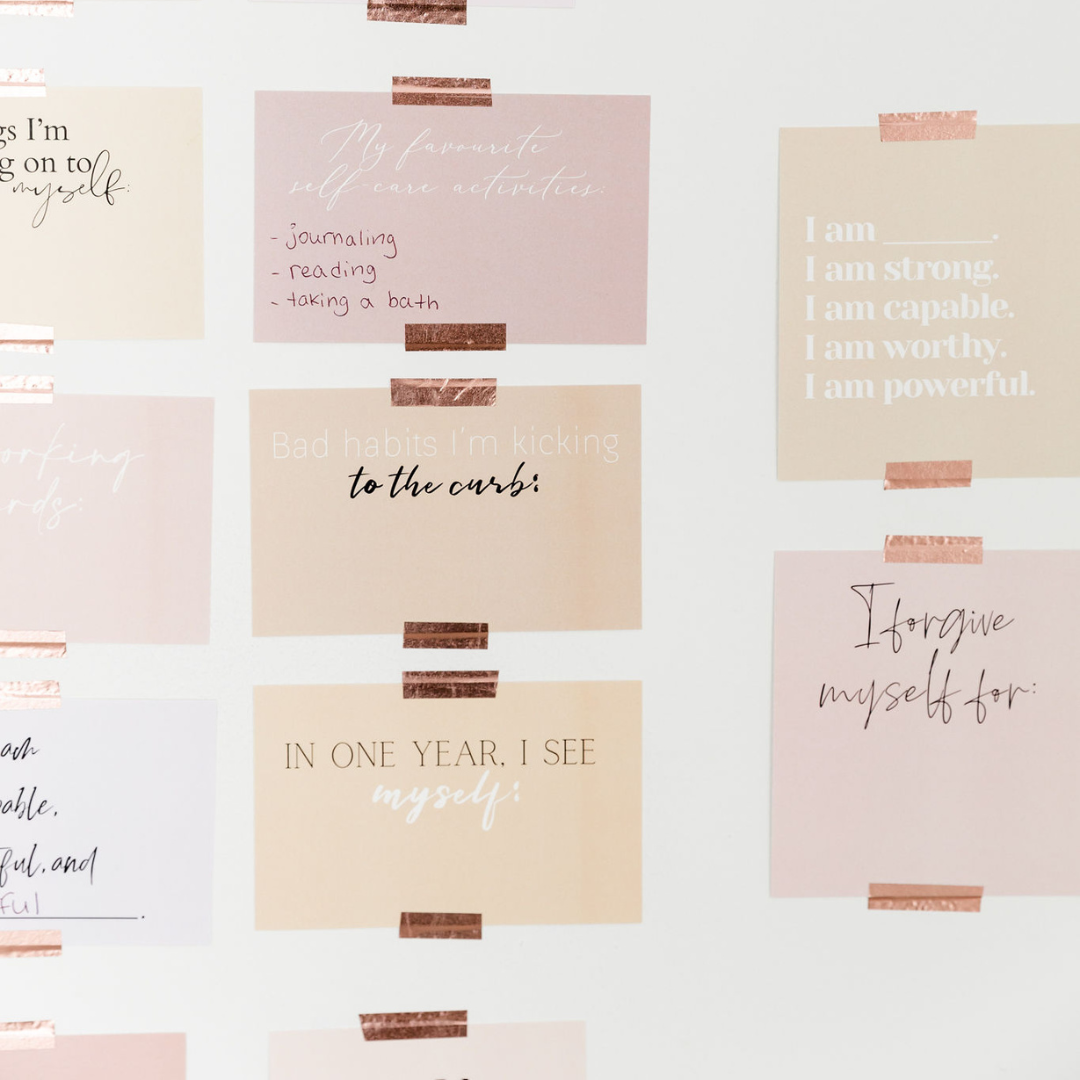 gs I'm
g on to
myself:
My favourite
self-care activities:
- journaling
- reading
- taking a bath
I am ______.
I am strong.
I am capable.
I am worthy.
I am powerful.
orking
rds:
Bad habits I'm kicking
to the curb:
I forgive
myself for:
able,
ful, and
ful
IN ONE YEAR, I SEE
myself: